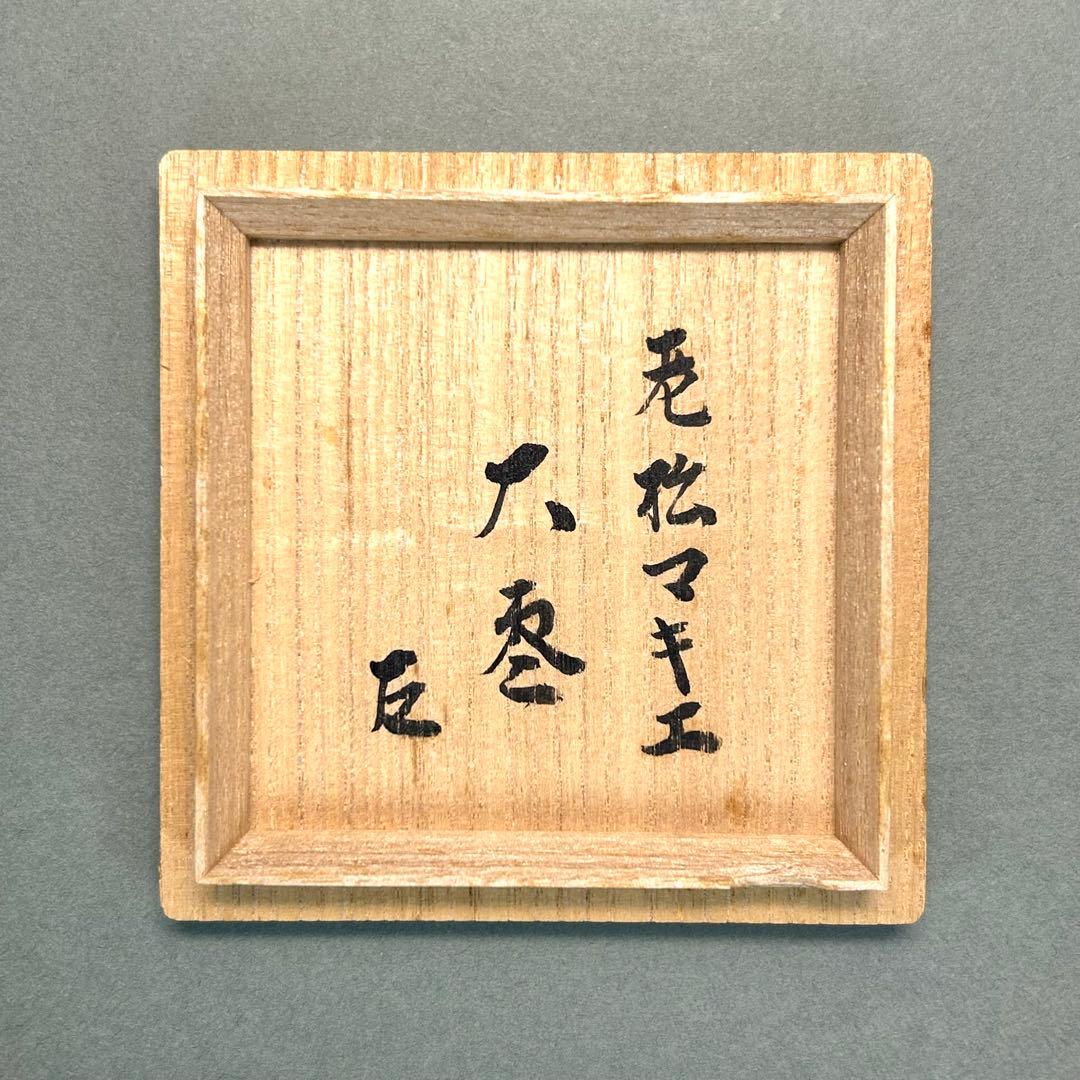 老松マキエ
大棗